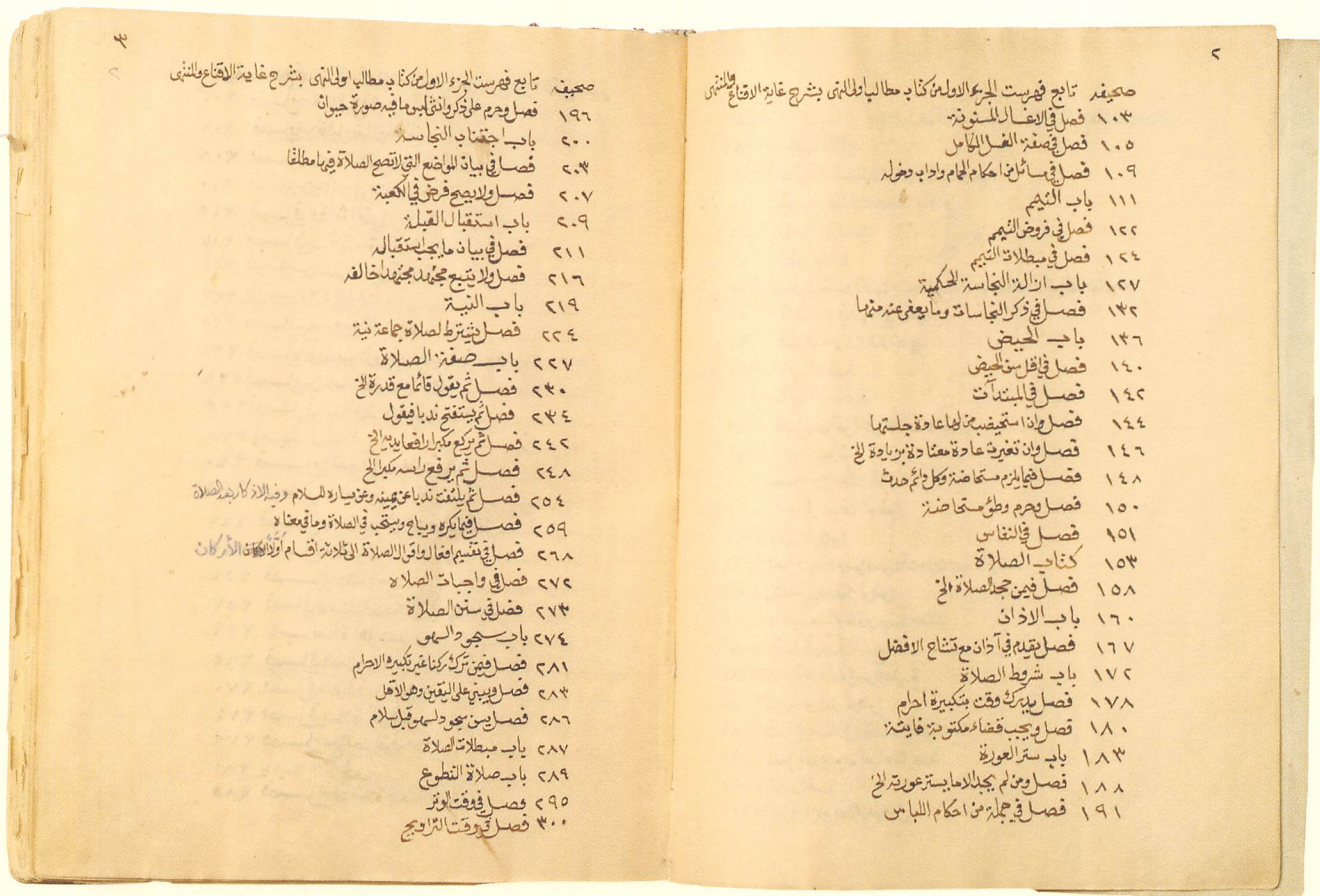 ٢
صحيفه تابع فهرست الجزء الاول من كتاب مطالب اولى النهى بشرح غاية الاقناع والمنتهى
١٠٣ فصل في الاغسال المسنونة
١٠٥ فصل في صفة الغسل الكامل
١٠٩ فصل في مسائل من احكام الحمام واداب دخوله
١١١ باب التيمم
١٢٢ فصل في فروض التيمم
١٢٤ فصل في مبطلات التيمم
١٢٧ باب ازالة النجاسة الحكمية
١٣٢ فصل في ذكر النجاسات وما يعفى عنه منها
١٣٦ باب الحيض
١٤٠ فصل في اقل سن الحيض
١٤٢ فصل في المبتدآت
١٤٤ فصل وان استحيضت من لها عادة جلستها
١٤٦ فصل وان تغيرت عادة معتادة بزيادة الخ
١٤٨ فصل فيما يلزم مستحاضة وكل دائم حدث
١٥٠ فصل وحرم وطؤ مستحاضة
١٥١ فصل في النفاس
١٥٣ كتاب الصلاة
١٥٨ فصل فيمن جحد الصلاة الخ
١٦٠ باب الاذان
١٦٧ فصل يقدم في آذان مع تشاح الافضل
١٧٢ باب شروط الصلاة
١٧٨ فصل يدرك وقت بتكبيرة احرام
١٨٠ فصل ويجب قضاء مكتوبة فايتة
١٨٣ باب ستر العورة
١٨٨ فصل ومن لم يجد الا ما يستر عورته الخ
١٩١ فصل في جملة من احكام اللباس
٣
صحيفه تابع فهرست الجزء الاول من كتاب مطالب اولى النهى بشرح غاية الاقناع والمنتهى
١٩٦ فصل وحرم على ذكر وانثى لبس ما فيه صورة حيوان
٢٠٠ باب اجتناب النجاسة
٢٠٣ فصل في بيان المواضع التي لا تصح الصلاة فيها مطلقا
٢٠٧ فصل ولا يصح فرض في الكعبة
٢٠٩ باب استقبال القبلة
٢١١ فصل في بيان ما يجب استقباله
٢١٦ فصل ولا يتبع مجتهد مجتهدا خالفه
٢١٩ باب النية
٢٢٤ فصل يشترط لصلاة جماعة نية
٢٢٧ باب صفة الصلاة
٢٣٠ فصل ثم يقول قائما مع قدرة الخ
٢٣٤ فصل ثم يستفتح ندبا فيقول
٢٤٢ فصل ثم يركع مكبرا رافعا يديه الخ
٢٤٨ فصل ثم يرفع راسه مكبرا الخ
٢٥٤ فصل ثم يلتفت ندبا عن يمينه وعن يساره للسلام وفيه الاذكار بعد الصلاة
٢٥٩ فصل فيما يكره ويباح ويستحب في الصلاة وما في معناه
٢٦٨ فصل في تقسيم افعال واقوال الصلاة الى ثلاثة اقسام أولاً الأركان
٢٧٢ فصل في واجبات الصلاه
٢٧٣ فصل في سنن الصلاة
٢٧٤ باب سجود السهو
٢٨١ فصل فيمن ترك ركنا غير تكبيرة الاحرام
٢٨٣ فصل ويبني على اليقين وهو الاقل
٢٨٦ فصل يسن سجود لسهو قبل سلام
٢٨٧ باب مبطلات الصلاة
٢٨٩ باب صلاة التطوع
٢٩٥ فصل في وقت الوتر
٣٠٠ فصل في وقت التراويح